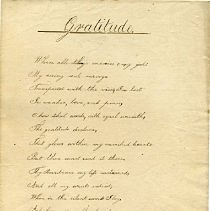 Gratitude.
When all thy mercies, my god
My rising soul surveys
Transported with the view I'm lost
In wonder, love, and praise
O how shall words, with equal warmth
The gratitude declare,
That glows within my ravished heart
But thou canst read it there
Thy Providence my life sustained
And all my wants
When in the silent womb I lay